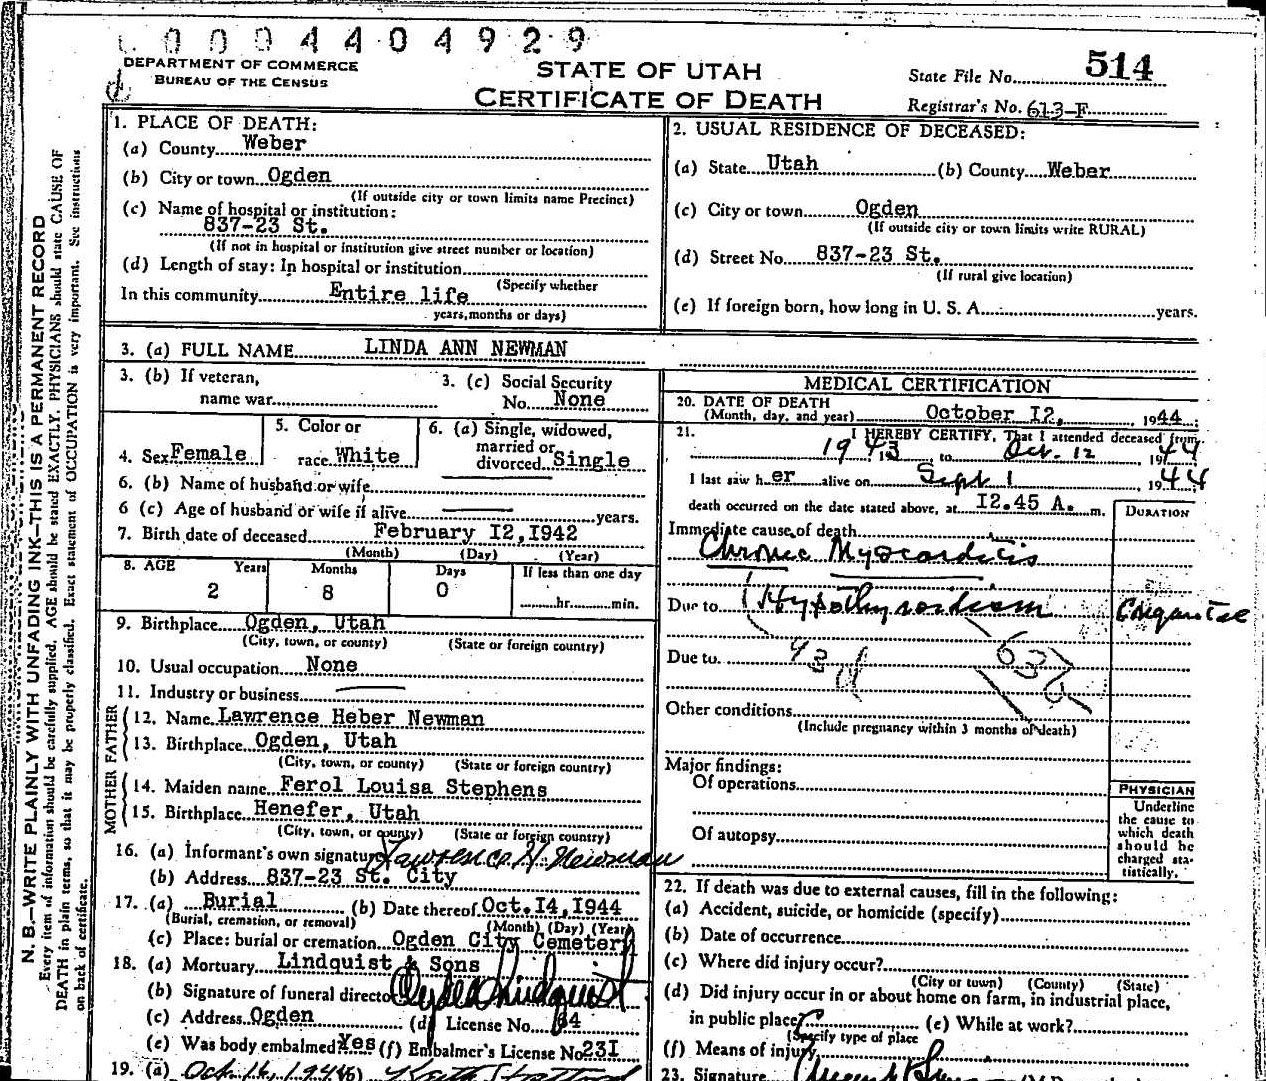 0 0 0 4 4 0 4 9 2 9
DEPARTMENT OF COMMERCE
BUREAU OF THE CENSUS
STATE OF UTAH
CERTIFICATE OF DEATH
State File No. 514
Registrar's No. 613-F
N. B.—WRITE PLAINLY WITH UNFADING INK—THIS IS A PERMANENT RECORD
Every item of information should be carefully supplied. AGE should be stated EXACTLY. PHYSICIANS should state CAUSE OF
DEATH in plain terms, so that is may be properly classified. Exact statement of OCCUPATION is very important. See instructions
on back of certificate.
1. PLACE OF DEATH:
(a) County Weber
(b) City or town Ogden
(If outside city or town limits name Precinct)
(c) Name of hospital or institution:
837-23 St.
(If not in hospital or institution give street number or location)
(d) Length of stay: In hospital or institution
(Specify whether
In this community Entire life
years, months or days)
2. USUAL RESIDENCE OF DECEASED:
(a) State Utah (b) County Weber
(c) City or town Ogden
(If outside city or town limits write RURAL)
(d) Street No. 837-23 St.
(If rural give location)
(e) If foreign born, how long in U. S. A. years.
3. (a) FULL NAME LINDA ANN NEWMAN
3. (b) If veteran,
name war
3. (c) Social Security
No. None
4. Sex Female
5. Color or
race White
6. (a) Single, widowed,
married or
divorced Single
6. (b) Name of husband or wife
6 (c) Age of husband or wife if alive years.
7. Birth date of deceased February 12, 1942
(Month) (Day) (Year)
8. AGE Years Months Days If less than one day
2 8 0 hr. min.
9. Birthplace Ogden, Utah
(City, town, or county) (State or foreign country)
10. Usual occupation None
11. Industry or business
FATHER
12. Name Lawrence Heber Newman
13. Birthplace Ogden, Utah
(City, town, or county) (State or foreign country)
MOTHER
14. Maiden name Ferol Louisa Stephens
15. Birthplace Henefer, Utah
(City, town, or county) (State or foreign country)
16. (a) Informant's own signature Lawrence H. Newman
(b) Address 837-23 St. City
17. (a) Burial (b) Date thereof Oct. 14, 1944
(Burial, cremation, or removal) (Month) (Day) (Year)
(c) Place: burial or cremation Ogden City Cemetery
18. (a) Mortuary Lindquist & Sons
(b) Signature of funeral director Clyde Lindquist
(c) Address Ogden (d) License No. 64
(e) Was body embalmed? Yes (f) Embalmer's License No. 231
19. (a) Oct. 16, 1944
MEDICAL CERTIFICATION
20. DATE OF DEATH
(Month, day, and year) October 12, 1944
21. I HEREBY CERTIFY, That I attended deceased from
1943 to Oct. 12, 1944
I last saw her alive on Sept 1 1944
death occurred on the date stated above, at 12.45 A. m.
DURATION
Immediate cause of death
Chronic Myocarditis
Due to Hypothyroidism
Due to 93d
Other conditions
(Include pregnancy within 3 months of death)
Major findings:
Of operations
Of autopsy
PHYSICIAN
Underline
the cause to
which death
should be
charged sta-
tistically.
22. If death was due to external causes, fill in the following:
(a) Accident, suicide, or homicide (specify)
(b) Date of occurrence
(c) Where did injury occur?
(City or town) (County) (State)
(d) Did injury occur in or about home on farm, in industrial place,
in public place? (e) While at work?
(Specify type of place
(f) Means of injury
23. Signature